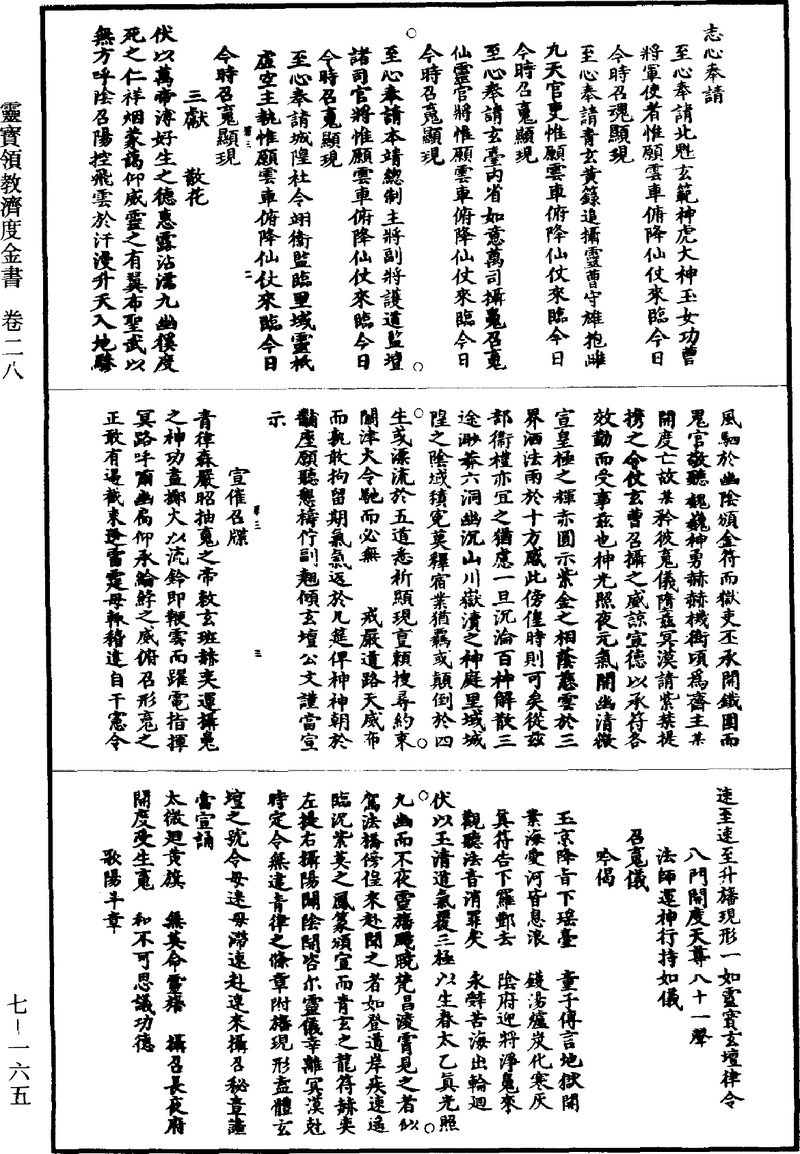 靈寶領教濟度金書　卷二八
七－一六五
志心奉請
至心奉請北魁玄範神虎大神玉女功曹
將軍使者惟願雲車俯降仙仗來臨今日
今時召魂顯現
至心奉請青玄黃籙追攝靈曹守雄抱雌
九天官吏惟願雲車俯降仙仗來臨今日
今時召䰟顯現
至心奉請玄臺內省如意萬司攝䰟召䰟
仙靈官將惟願雲車俯降仙仗來臨今日
今時召䰟顯現
至心奉請本靖總制主將副將護道監壇
諸司官將惟願雲車俯降仙仗來臨今日
今時召䰟顯現
至心奉請城隍社令翊衛監臨里域靈祇
虛空主執惟願雲車俯降仙仗來臨今日
今時召䰟顯現
三獻　散花
伏以萬帝溥好生之德惠露沾濡九幽樸度
死之仁祥烟蒙藹仰威靈之有翼布聖武以
無方呼陰召陽控飛雲於汗漫升天入地驂
風駟於幽陰頒金符而獄吏丕承開鐵圍而
鬼官敬聽巍巍神勇赫赫機衡頃為齋主某
開度亡故某矜彼䰟儀隋玆冥漠請紫禁提
携之令仗玄曹召攝之威諒宣德以承符各
效勤而受事玆也神光照夜元氣開幽清微
宣皇極之輝赤圓示紫金之相蔭慈雲於三
界洒法雨於十方感此傍偟時則可矣從玆
部衛禮亦宜之猶慮一旦沉淪百神解散三
途渺莽六洞幽沉山川嶽瀆之神庭里域城
隍之陰域積寃莫釋宿業猶羈或顛倒於四
生或漂流於五道悉祈顯現亶賴搜尋約束
關津火令馳而必無　戒嚴道路天威布
而孰敢拘留期氣氣返於凡筵俾神神朝於
黼座願聽懇禱佇副翹傾玄壇公文謹當宣
示
宣催召牒
青律森嚴昭抽䰟之帝敕玄班赫奕運攝鬼
之神功盍擲火以流鈴即鞭雲而躍電指揮
冥路呼爾幽扃仰承綸綍之威俯召形䰟之
正敢有遏截束逐雷霆毋輒稽違自干憲令
速至速至升旛現形一如靈寶玄壇律令
八門開度天尊八十一聲
法師運神行持如儀
召䰟儀
吟偈
玉京降旨下瑶臺　童子傳言地獄開
業海愛河皆息浪　鑊湯爐炭化寒灰
眞符告下羅酆去　陰府迎將淨䰟來
觀聽法音消罪矣　永辭苦海出輪廻
伏以玉清道氣覆三極以生春太乙眞光照
九幽而不夜靈旛颺颺梵昌淩霄見之者似
駕法橋傍徨來赴聞之者如登道岸疾速遙
臨況紫英之鳳篆頒宣而青玄之龍符赫奕
左提右攝陽開陰闢咨尔靈儀幸離冥漠尅
時定令無違青律之條章附旛現形盍體玄
壇之號令毋迷毋滯速赴速來攝召秘章謹
當宣誦
太微廻黃旗　無英命靈旛　攝召長夜府
開度受生䰟　和不可思議功德
歌陽斗章